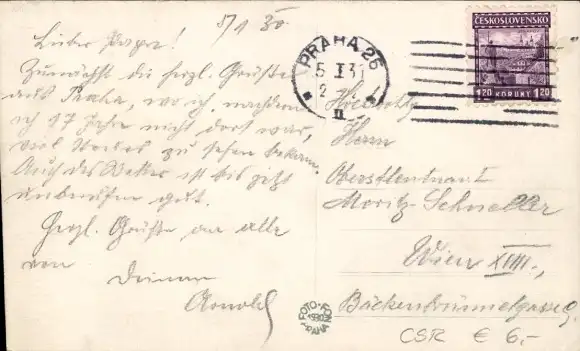 5/1 30.
Lieber Papa!
Zunächst die herzl. Grüße
aus Praha, wo ich, nachdem
ich 17 Jahre nicht dort war,
viel zu sehen bekam.
Auch das Wetter ist bis jetzt
unberufen gut.
Herzl. Grüße an alle
von
Deinem
Arnold
PRAHA 26
5 I 31
2
II
ČESKOSLOVENSKO
1.20 KORUNY 1.20
Herrn
Oberstleutnant
Moritz Schneller
Wien XVIII.,
FOTO-FON
1930
PRAHA
CSR € 6,-